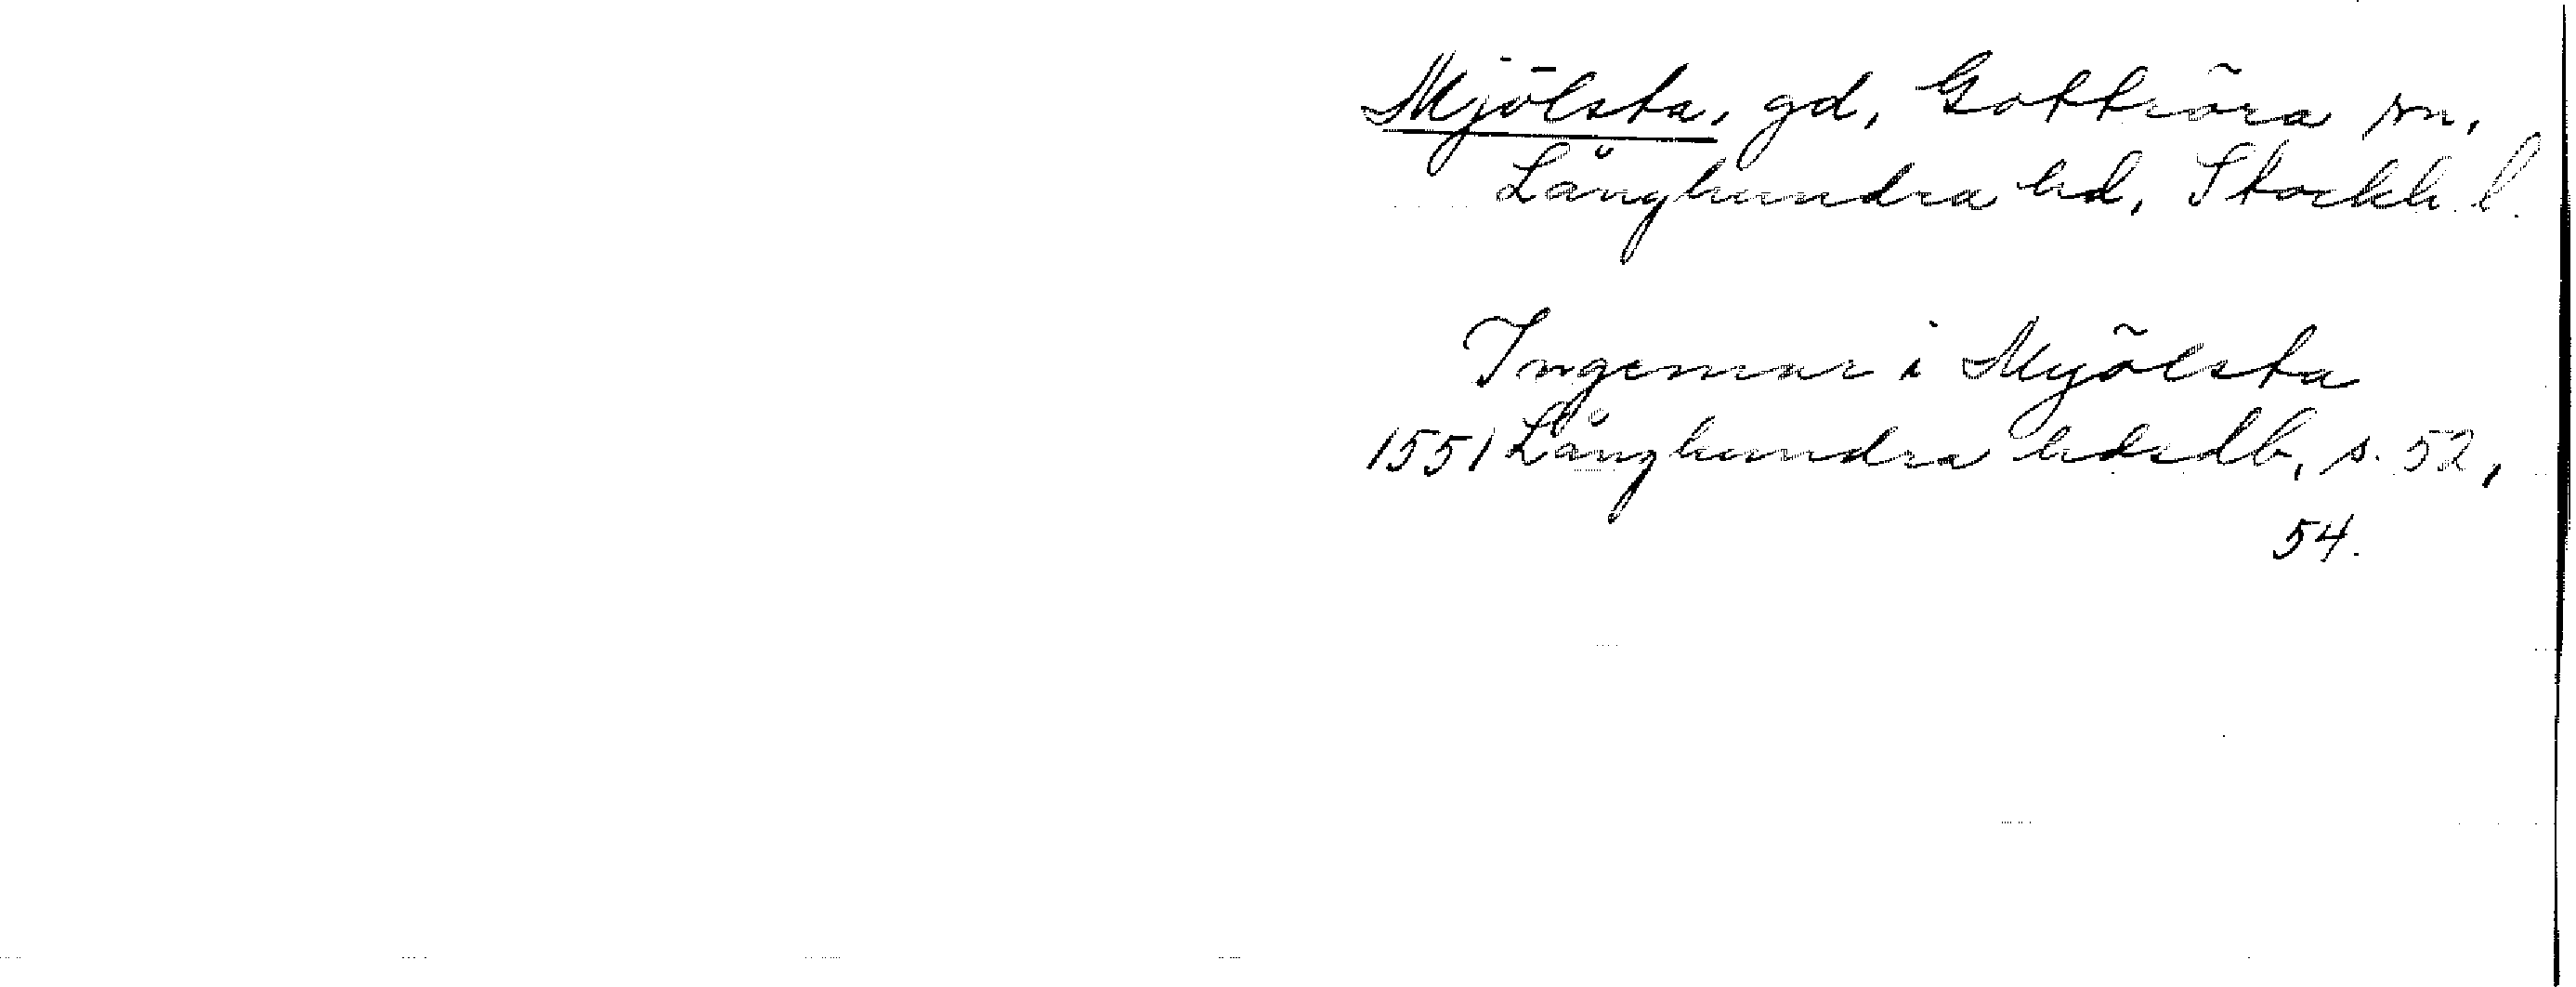 Mjölsta, gd, Gottröra sn,
Långhundra hd, Stockh. l.
Ingemar i Myölsta
1551 Långhundra hdsdb, s. 52,
54.